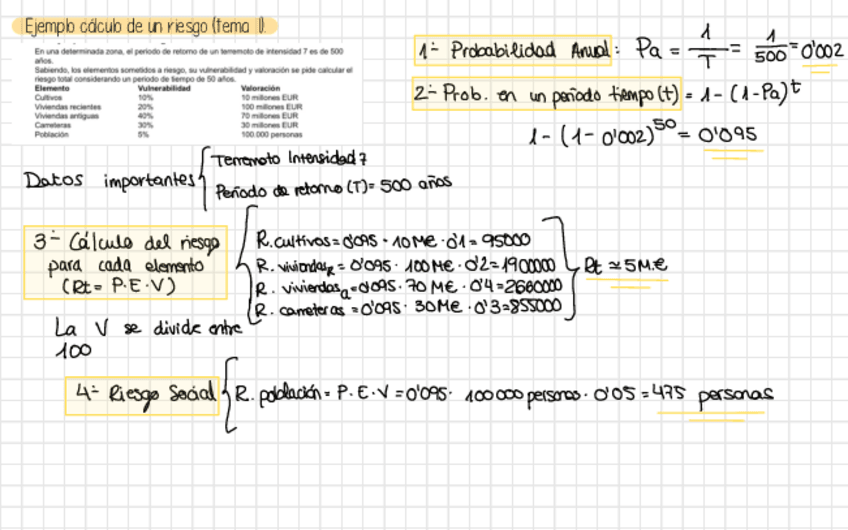 Ejemplo cálculo de un riesgo (tema 1).
En una determinada zona, el periodo de retorno de un terremoto de intensidad 7 es de 500
años.
Sabiendo, los elementos sometidos a riesgo, su vulnerabilidad y valoración se pide calcular el
riesgo total considerando un periodo de tiempo de 50 años.
Elemento Vulnerabilidad Valoración
Cultivos 10% 10 millones EUR
Viviendas recientes 20% 100 millones EUR
Viviendas antiguas 40% 70 millones EUR
Carreteras 30% 30 millones EUR
Población 5% 100.000 personas
1- Probabilidad Anual: Pa = 1/T = 1/500 = 0'002
2- Prob. en un periodo tiempo (t) = 1 - (1-Pa)^t
1 - (1 - 0'002)^50 = 0'095
Datos importantes
Terremoto Intensidad 7
Período de retorno (T) = 500 años
3- Cálculo del riesgo
para cada elemento
(Rt = P·E·V)
R. cultivos = 0'095 · 10M€ · 0'1 = 95000
R. viviendas_R = 0'095 · 100M€ · 0'2 = 1900000
R. viviendas_a = 0'095 · 70 M€ · 0'4 = 2660000
R. carreteras = 0'095 · 30M€ · 0'3 = 855000
Rt ≃ 5M.€
La V se divide entre
100
4- Riesgo Social
R. población = P.E.V = 0'095 · 100000 personas · 0'05 = 475 personas